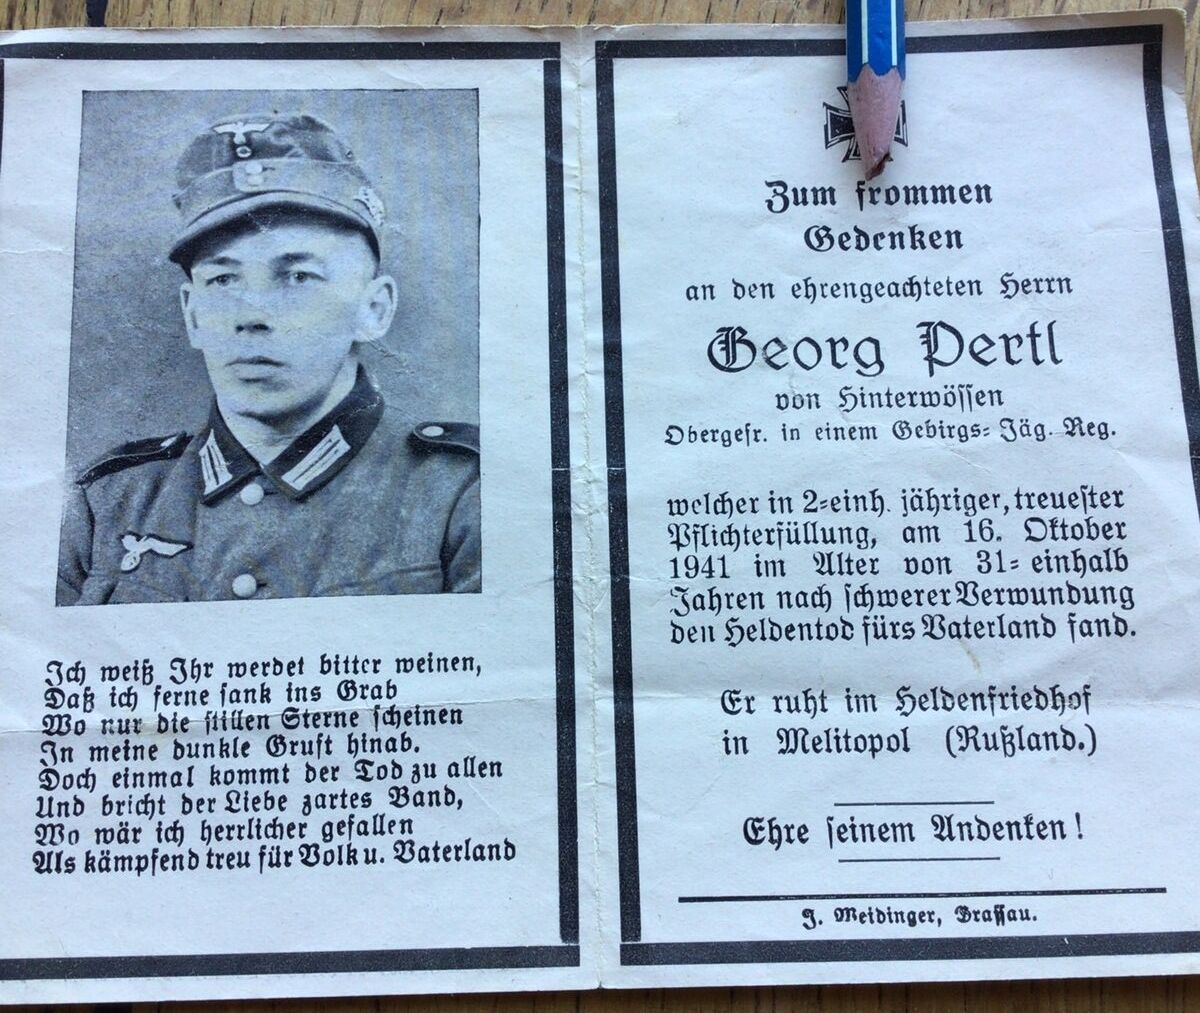 Ich weiß Ihr werdet bitter weinen,
Daß ich ferne sank ins Grab
Wo nur die stillen Sterne scheinen
In meine dunkle Gruft hinab.
Doch einmal kommt der Tod zu allen
Und bricht der Liebe zartes Band,
Wo wär ich herrlicher gefallen
Als kämpfend treu für Volk u. Vaterland
Zum frommen
Gedenken
an den ehrengeachteten Herrn
Georg Pertl
von Hinterwössen
Obergefr. in einem Gebirgs-Jäg. Reg.
welcher in 2-einh. jähriger, treuester
Pflichterfüllung, am 16. Oktober
1941 im Alter von 31-einhalb
Jahren nach schwerer Verwundung
den Heldentod fürs Vaterland fand.
Er ruht im Heldenfriedhof
in Melitopol (Rußland.)
Ehre seinem Andenken!
J. Meidinger, Grassau.